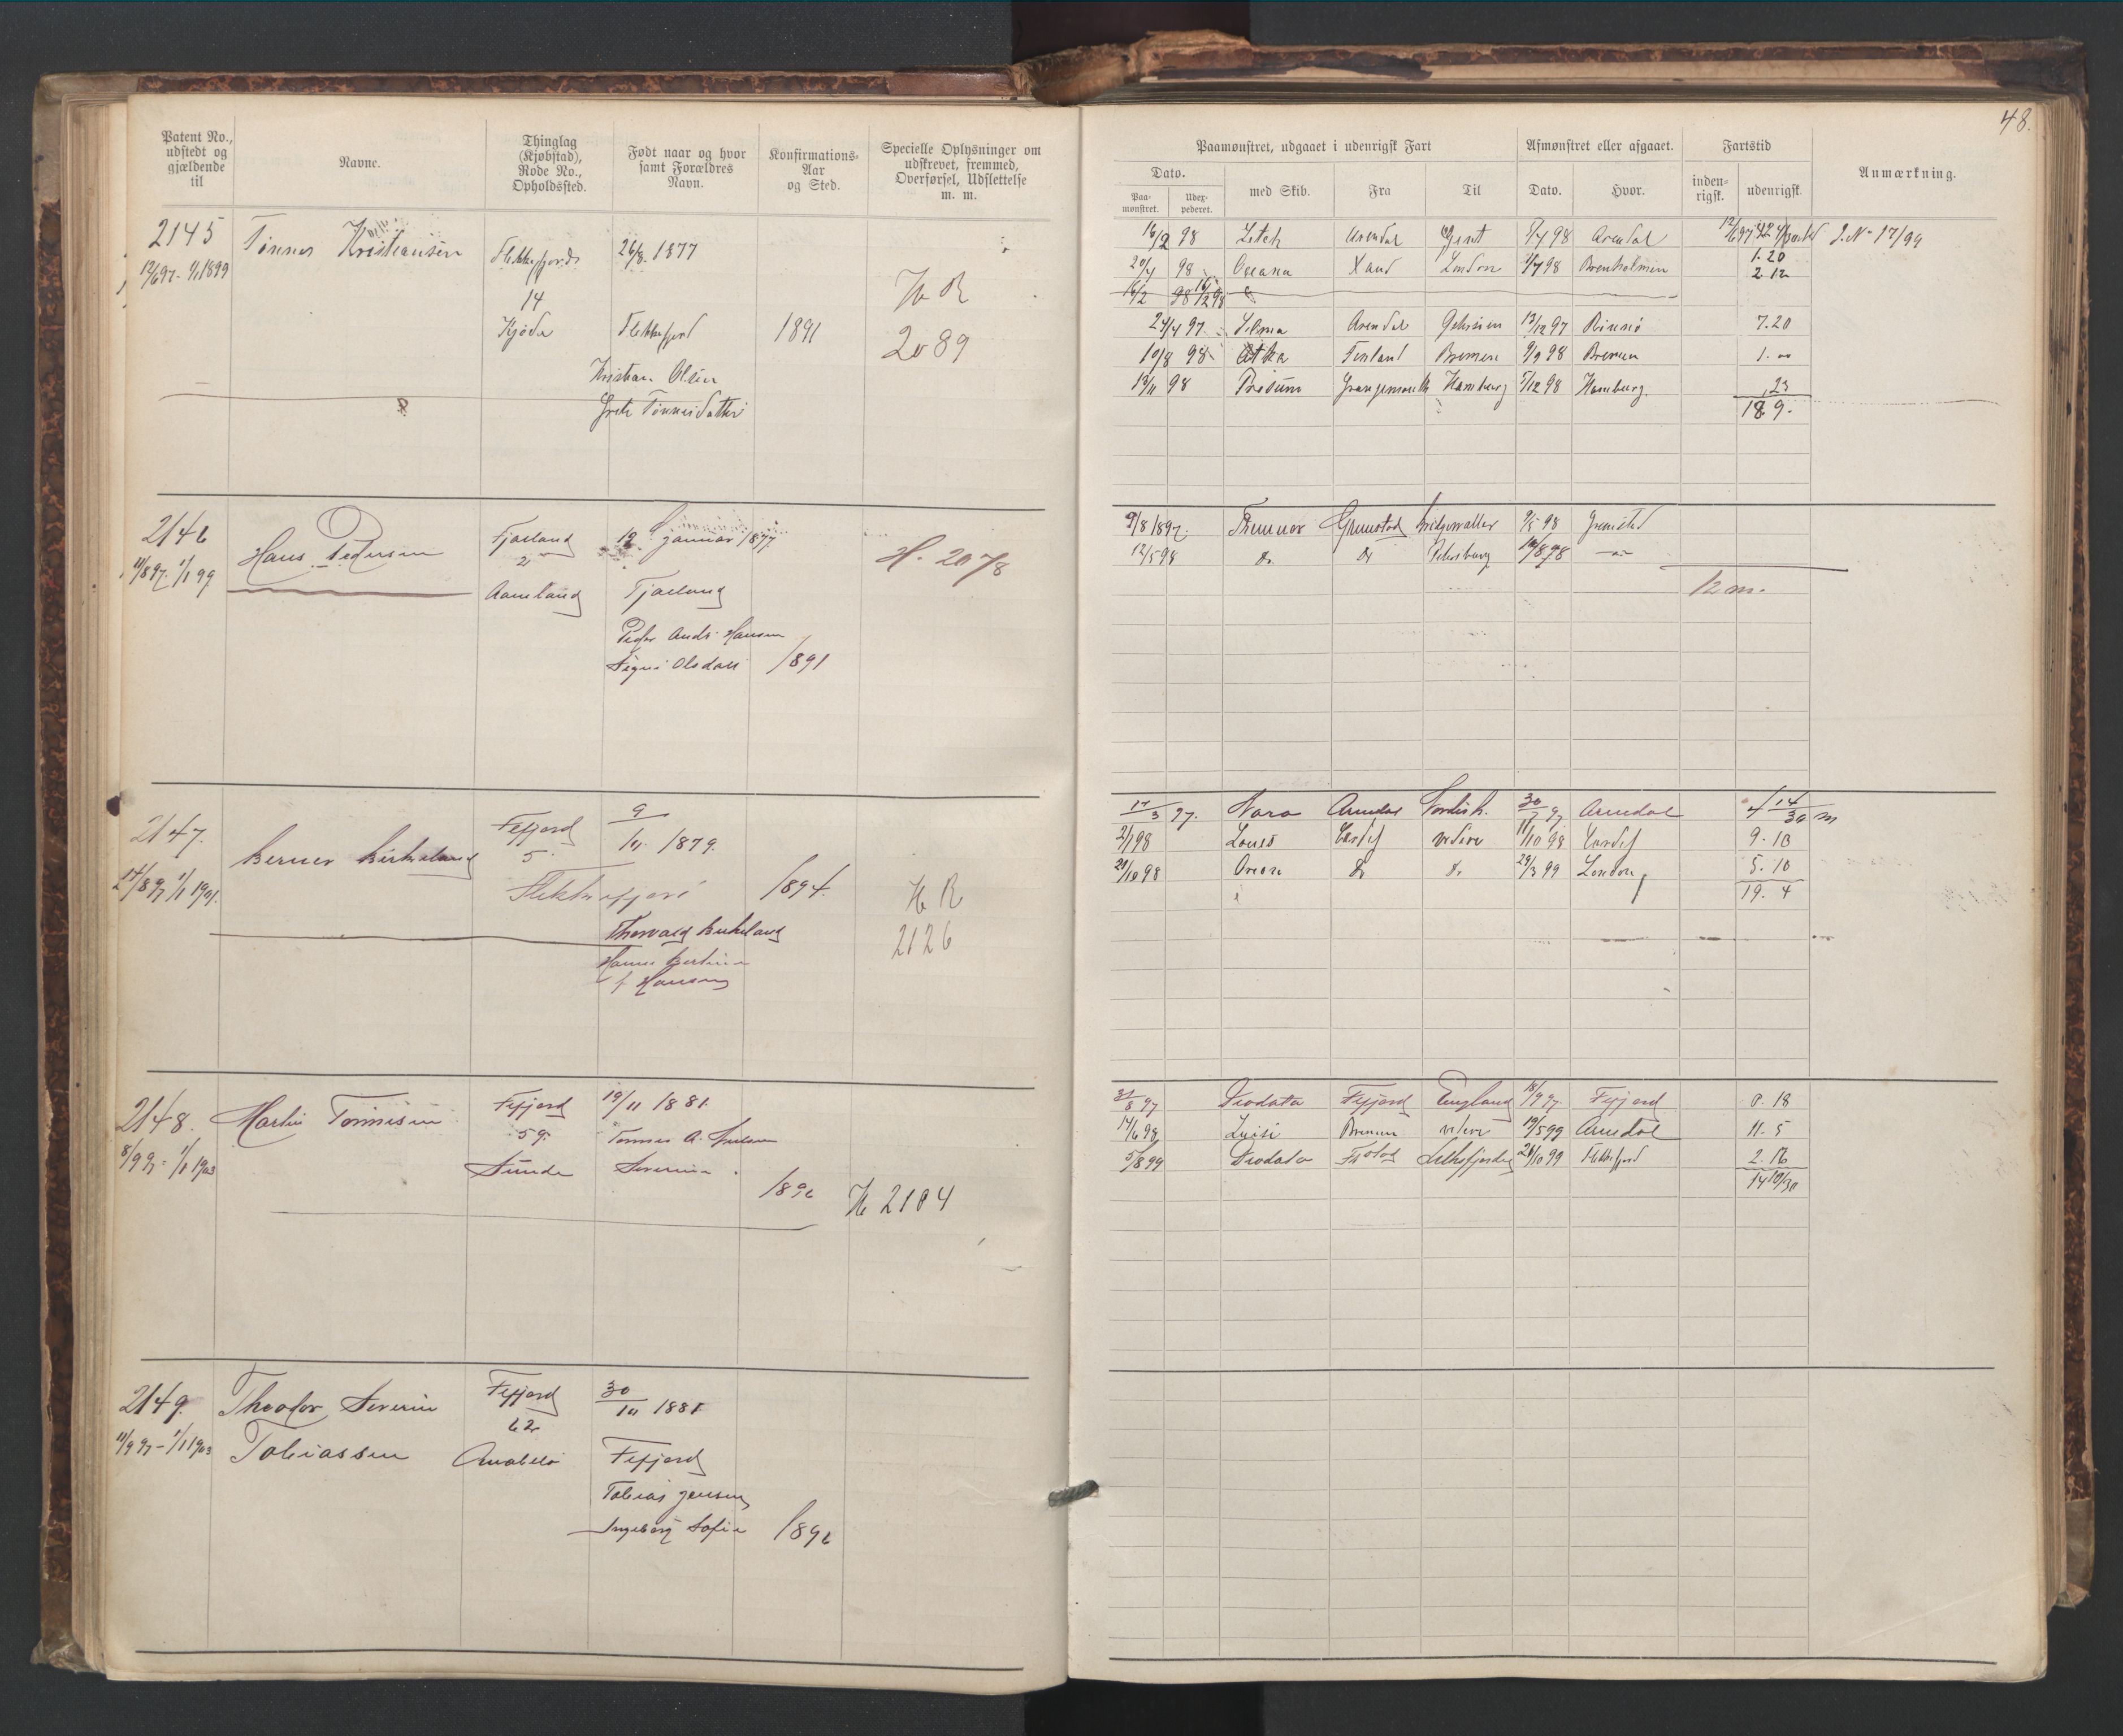 48.
Patent No., udstedt og gjældende til
Navne.
Thinglag (Kjøbstad), Rode No., Opholdssted.
Født naar og hvor samt Forældres Navn.
Konfirmations-Aar og Sted.
Specielle Oplysninger om udskrevet, fremmed, Overførsel, Udslettelse m. m.
Paamønstret, udgaaet i udenrigsk Fart
Afmønstret eller afgaaet.
Fartstid
Anmærkning.
Dato.
Paa-mønstret.
Udex-pederet.
med Skib.
Fra
Til
Dato.
Hvor.
inden-rigsk.
udenrigsk.
2145 Tønnes Kristiansen Flekkefjord 26/8. 1877
12/6 97 - 1/1 1899
14
Kjøde Flekkefjord 1891
H R
2089
Kristian Olsen
Grete Tønnesdatter
16/2 98 Arendal 98 Arendal J. N. 17/99
20/4 98 Oceana London 98 1.20
2 12
16/2 98
24/4 97 Arendal 13/12 97 7.20
10/8 98 Atka Finland Bremen 9/9 98 Bremen 1.00
13/11 98 Grangemouth Hamburg 7/12 98 Hamburg 23
18 9.
2146 Hans Pedersen Fjæland 12 Januar 1877
11/8 97 1/1 99
2
Aamland Fjæland
H. 2078
Peder Andr. Hansen
Signe Olsdatt 1891
9/8 1897 Grimstad 9/5 98 Grimsted
12/5 98 Do. Do Petersburg 98 —"—
12 m.
2147. Berner Birkeland Fefjord 9/10 1879.
14/8 97 1/1 1901.
5.
Flekkefjord 1894.
H R
2126
Thorvald Birkeland
Hanne Bertine
f Hansen
17/3 97. Nora Arendal 30/7 97 Arendal 4 14/30 m
2/1 98 Louis Cardif videre 11/10 98 Cardif 9.10
21/10 98 Orion Do Do 29/3 99 London 5.10
19.4
2148. Martin Tønnisen Fefjord 19/11 1881.
8/9 97 - 1/1 1903
59.
Sunde Severine
1896
H 2104
31/8 97 Deodata Fefjord England 18/9 97 Fefjord 0.18
14/6 98 Luise Bremen videre 19/5 99 Arendal 11.5
5/8 99 Deodata 21/10 99 Flekkefjord 2.16
14 10/30
2149. Theodor Severin Fefjord 30/10 1881.
11/9 97 - 1/1 1903
Tobiassen
62
Anabelø Fefjord
Tobias Jensen
Ingeborg Sofie 1896